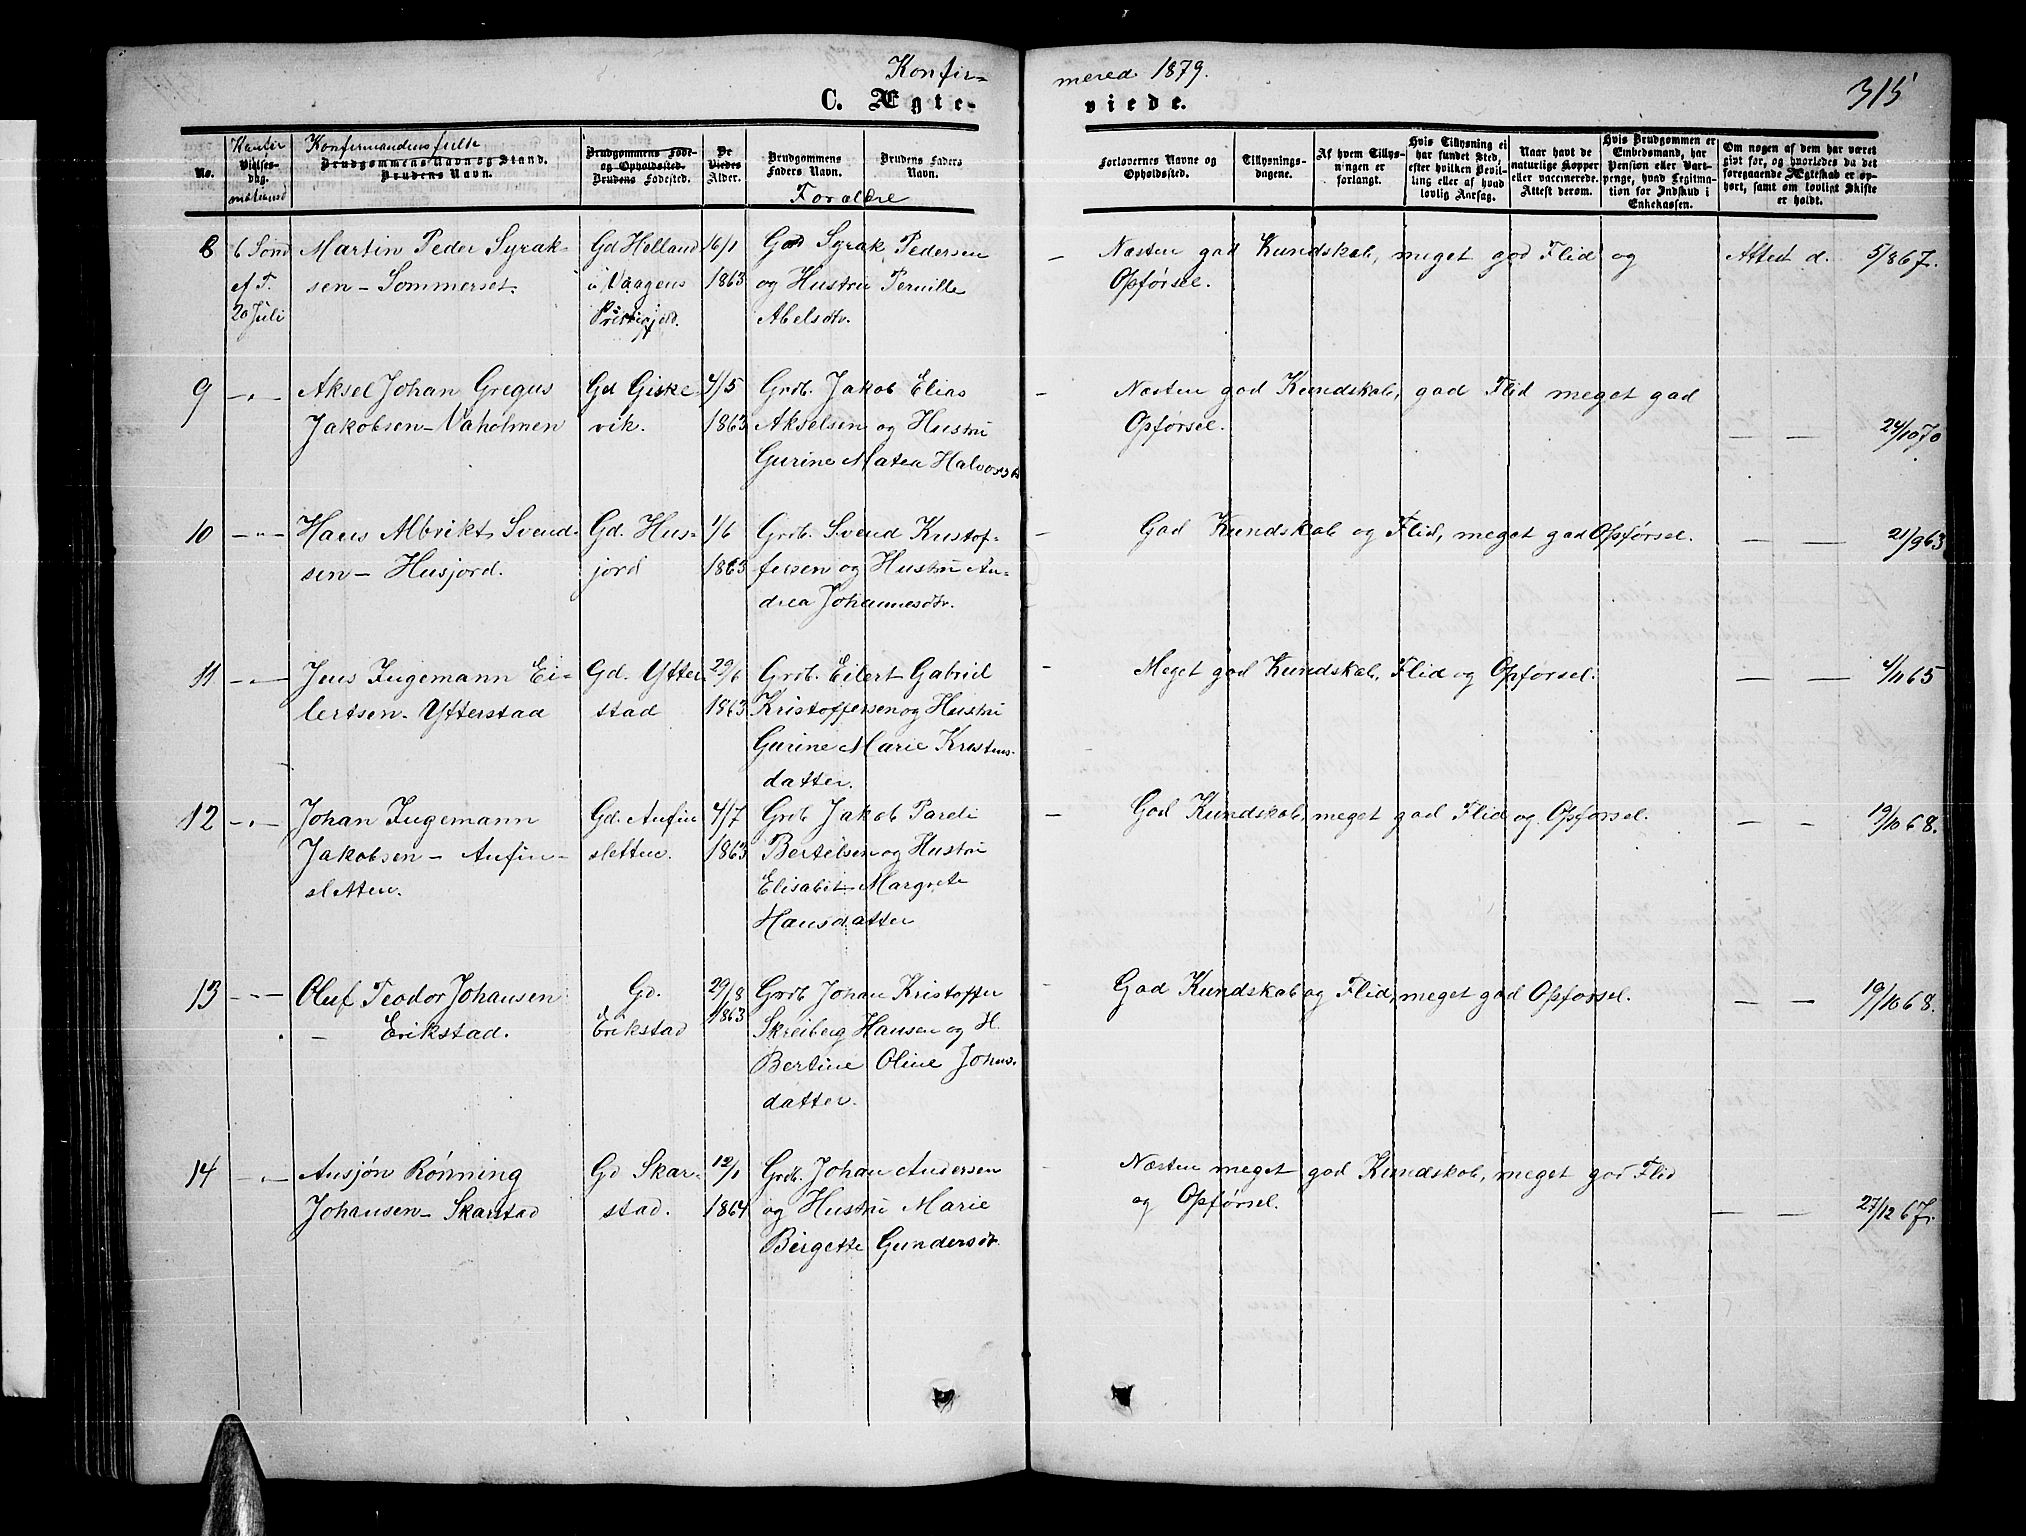 Konfir=
mered 1879.
315
C. Ægte-
viede.
No.
Vielses-
dag.
Konfirmandens fulde
Brudgommens Navn og Stand.
Brudens Navn.
Brudgommens Føde-
og Opholdssted.
Brudens Fødested.
De
Viedes
Alder.
Brudgommens
Faders Navn.
Brudens Faders
Navn.
Forældre
Forlovernes Navne og
Opholdssted.
Tillysnings-
dagene.
Af hvem Tillys-
ningen er
forlangt.
Hvis Tillysning ei
har fundet Sted,
efter hvilken Bevil-
ling eller af hvad
lovlig Aarsag.
Naar havt de
naturlige Kopper
eller vaccinerede.
Attest derom.
Hvis Brudgommen er
Embedsmand, har
Pension eller Vart-
penge, hvad Legitima-
tion for Indskud i
Enkekassen.
Om nogen af dem har været
gift før, og hvorledes da det
foregaaende Ægteskab er op-
hørt, samt om lovligt Skifte
er holdt.
8
6 Sønd
ef T.
20 Juli
Martin Peder Syrak-
sen - Sommerset.
Gd Helland
i Vaagens
Præstegjeld.
16/1
1863
Syrak Pedersen
og Hustru Pernille
Abelsdtr.
- Næsten god Kundskab, meget god Flid og
Opførsel.
Attest d. 5/867.
9 - " -
Aksel Johan Gregus
Jakobsen - Vaholmen
Gd Giske-
vik.
4/5
1863
Grdb. Jakob Elias
Akselsen og Hustru
Gurine Matea
- Næsten god Kundskab, god Flid meget god
Opførsel.
— — 24/1070
10 - " -
Hans Albrikt Svend-
sen - Husjord.
Gd. Hus-
jord
1/6
1863
Grdb. Svend Kristof-
fersen og Hustru An-
drea Johannesdtr.
- God Kundskab og Flid, meget god Opførsel.
— — 21/963
11 - " -
Jens Ingemann Ei-
lertsen - Ytterstad
Gd. Ytter-
stad
29/6
1863
Grdb. Eilert Gabriel
Kristoffersen og Hustru
Gurine Marie Kristens-
datter.
- Meget god Kundskab, Flid og Opførsel.
— — 4/1165
12 - " -
Johan Ingemann
Jakobsen - Anfin-
sletten.
Gd. Anfin
sletten.
4/7
1863
Grdb Jakob Pareli
Bertelsen og Hustru
Elisabet Margrete
Hansdatter
- God Kundskab, meget god Flid og Opførsel.
— — 19/1068.
13 - " -
Oluf Teodor Johansen
- Erikstad.
Gd.
Erikstad
29/8
1863
Grdb Johan Kristoffer
Skreiberg Hansen og H.
Bertine Oline Johns-
datter.
- God Kundskab og Flid, meget god Opførsel.
— — 19/1068.
14 - " -
Ansjøn Rønning
Johansen - Skarstad
Gd Skar-
stad.
12/1
1864
Grdb. Johan Andersen
og Hustru Marie
Birgette Gundersdtr.
- Næsten meget god Kundskab, meget god Flid
og Opførsel.
— — 27/1267.